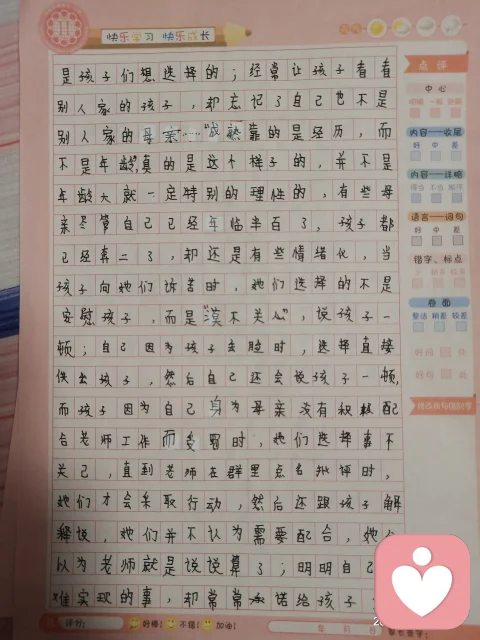 快乐学习 快乐成长
是孩子们想选择的；经常让孩子看看
别人家的孩子，却忘记了自己也不是
别人家的母亲……“成熟靠的是经历，而
不是年龄”，真的是这个样子的，并不是
年龄大就一定特别的理性的，有些母
亲尽管自己已经年临半百了，孩子都
已经奔二了，却还是有些情绪化，当
孩子向她们诉苦时，她们选择的不是
安慰孩子，而是“漠不关心”，说孩子一
顿；自己因为孩子去脸时，选择直接
供出孩子，然后自己还会说孩子一顿，
而孩子因为自己身为母亲没有积极配
合老师工作而受罚时，她们选择事不
关己，直到老师在群里点名批评时，
她们才会采取行动，然后还跟孩子解
释说，她们并不认为需要配合，她
以为老师就是说说算了；明明自己
难实现的事，却常常承诺给孩子
点评
中心
明确 一般
内容—收尾
好 中 差
内容—详略
得当 不当
语言—词句
好 中 差
错字、标点
卷面
整洁 稍差 较差
好词 处
好句 处
修改病句错别字
评分：
好棒！ 不错！ 加油！